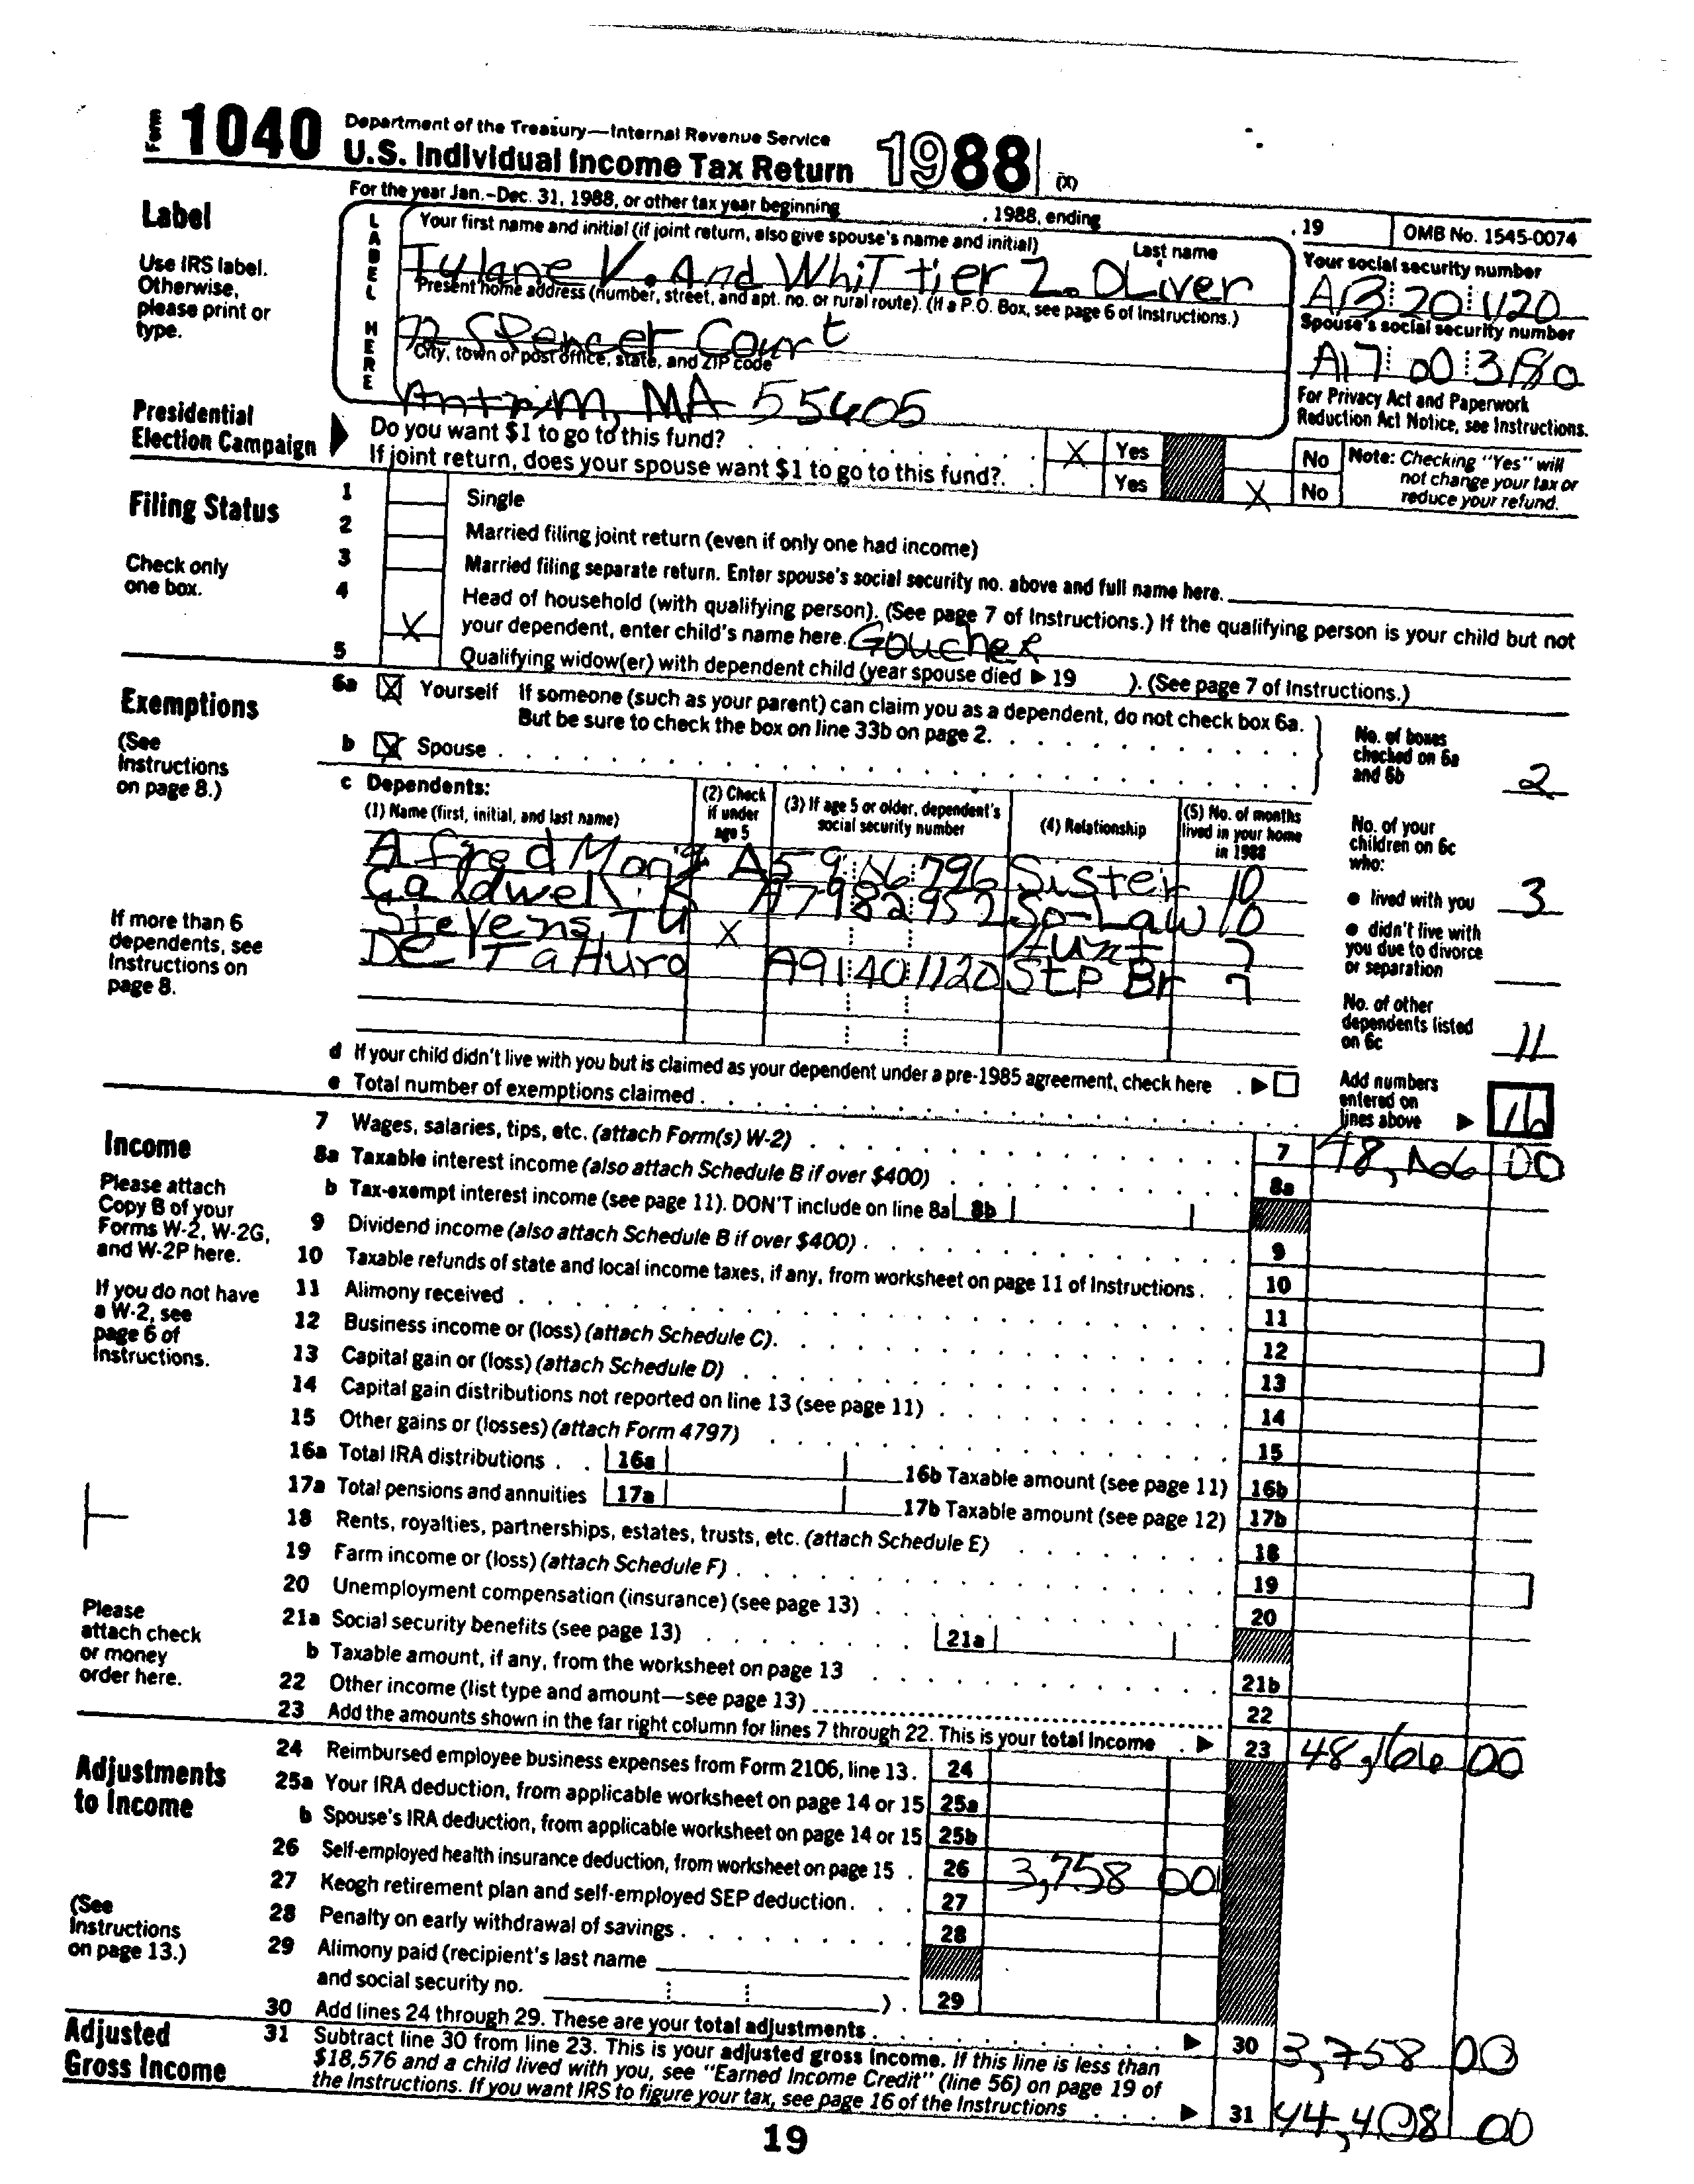 Form 1040 Department of the Treasury—Internal Revenue Service
U.S. Individual Income Tax Return 1988 (X)
For the year Jan.–Dec. 31, 1988, or other tax year beginning , 1988, ending , 19 OMB No. 1545-0074
Label
Use IRS label. Otherwise, please print or type.
LABEL HERE
Your first name and initial (if joint return, also give spouse's name and initial) Last name
Tulane V. And Whittier Z. Oliver
Your social security number
A13 20 1120
Present home address (number, street, and apt. no. or rural route). (If a P.O. Box, see page 6 of Instructions.)
72 Spencer Court
Spouse's social security number
A17 00 3180
City, town or post office, state, and ZIP code
Antrim, MA 55405
For Privacy Act and Paperwork Reduction Act Notice, see Instructions.
Presidential Election Campaign
Do you want $1 to go to this fund? X Yes No
If joint return, does your spouse want $1 to go to this fund? Yes X No
Note: Checking "Yes" will not change your tax or reduce your refund.
Filing Status
Check only one box.
1 Single
2 Married filing joint return (even if only one had income)
3 Married filing separate return. Enter spouse's social security no. above and full name here.
4 X Head of household (with qualifying person). (See page 7 of Instructions.) If the qualifying person is your child but not
your dependent, enter child's name here. Goucher
5 Qualifying widow(er) with dependent child (year spouse died ▶ 19 ). (See page 7 of Instructions.)
Exemptions
(See Instructions on page 8.)
6a X Yourself If someone (such as your parent) can claim you as a dependent, do not check box 6a.
But be sure to check the box on line 33b on page 2.
b X Spouse
No. of boxes checked on 6a and 6b 2
c Dependents:
(1) Name (first, initial, and last name) (2) Check if under age 5 (3) If age 5 or older, dependent's social security number (4) Relationship (5) No. of months lived in your home in 1988
Alfred A59 16 796 Sister 10
Caldwell, K A79 82 952 So-Law 10
Stevens, Tu X Aunt 7
DeltaHurd A91 40 1120 Stp Br 7
If more than 6 dependents, see Instructions on page 8.
No. of your children on 6c who:
● lived with you 3
● didn't live with you due to divorce or separation
No. of other dependents listed on 6c 11
d If your child didn't live with you but is claimed as your dependent under a pre-1985 agreement, check here ▶
e Total number of exemptions claimed
Add numbers entered on lines above ▶ 16
Income
Please attach Copy B of your Forms W-2, W-2G, and W-2P here.
If you do not have a W-2, see page 6 of Instructions.
Please attach check or money order here.
7 Wages, salaries, tips, etc. (attach Form(s) W-2) 7 48,166 00
8a Taxable interest income (also attach Schedule B if over $400) 8a
b Tax-exempt interest income (see page 11). DON'T include on line 8a 8b
9 Dividend income (also attach Schedule B if over $400) 9
10 Taxable refunds of state and local income taxes, if any, from worksheet on page 11 of Instructions 10
11 Alimony received 11
12 Business income or (loss) (attach Schedule C) 12
13 Capital gain or (loss) (attach Schedule D) 13
14 Capital gain distributions not reported on line 13 (see page 11) 14
15 Other gains or (losses) (attach Form 4797) 15
16a Total IRA distributions 16a 16b Taxable amount (see page 11) 16b
17a Total pensions and annuities 17a 17b Taxable amount (see page 12) 17b
18 Rents, royalties, partnerships, estates, trusts, etc. (attach Schedule E) 18
19 Farm income or (loss) (attach Schedule F) 19
20 Unemployment compensation (insurance) (see page 13) 20
21a Social security benefits (see page 13) 21a
b Taxable amount, if any, from the worksheet on page 13 21b
22 Other income (list type and amount—see page 13) 22
23 Add the amounts shown in the far right column for lines 7 through 22. This is your total income ▶ 23 48,166 00
Adjustments to Income
(See Instructions on page 13.)
24 Reimbursed employee business expenses from Form 2106, line 13. 24
25a Your IRA deduction, from applicable worksheet on page 14 or 15 25a
b Spouse's IRA deduction, from applicable worksheet on page 14 or 15 25b
26 Self-employed health insurance deduction, from worksheet on page 15 26 3,758 00
27 Keogh retirement plan and self-employed SEP deduction 27
28 Penalty on early withdrawal of savings 28
29 Alimony paid (recipient's last name
and social security no. ) 29
30 Add lines 24 through 29. These are your total adjustments ▶ 30 3,758 00
Adjusted Gross Income
31 Subtract line 30 from line 23. This is your adjusted gross income. If this line is less than
$18,576 and a child lived with you, see "Earned Income Credit" (line 56) on page 19 of
the Instructions. If you want IRS to figure your tax, see page 16 of the Instructions ▶ 31 44,408 00
19